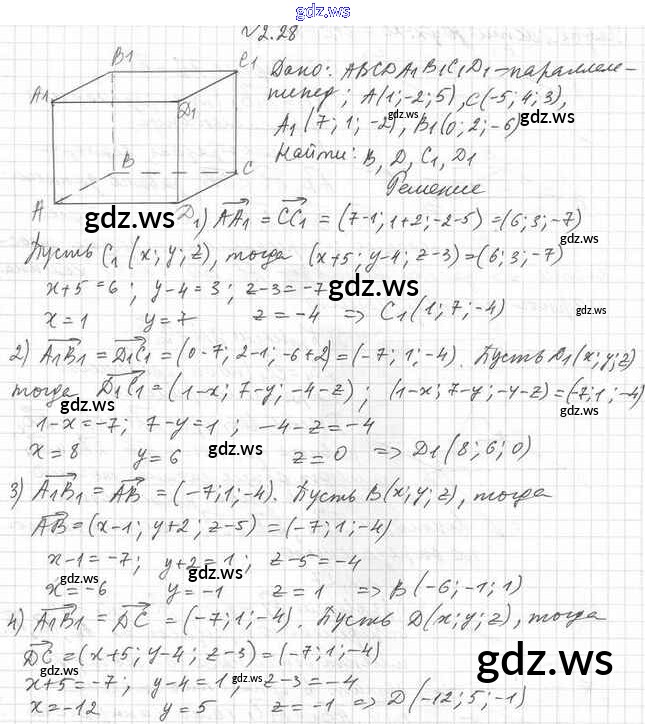 gdz.ws
√2.28
B1
C1
A1
D1
B
C
A
D
Дано: ABCDA1B1C1D1 – параллеле-
пипед; A(1;-2;5), C(-5;4;3),
A1(7;1;-2), B1(0;2;-6)
gdz.ws
Найти: B, D, C1, D1
Решение
gdz.ws
1) AA1 = CC1 = (7-1; 1+2; -2-5) = (6; 3; -7)
gdz.ws
Пусть C1 (x; y; z), тогда (x+5; y-4; z-3) = (6; 3; -7)
x+5=6; y-4=3; z-3=-7
gdz.ws
gdz.ws
x=1 y=7 z=-4 => C1(1; 7; -4)
2) A1B1 = D1C1 = (0-7; 2-1; -6+2) = (-7; 1; -4). Пусть D1(x; y; z)
gdz.ws
тогда D1C1 = (1-x; 7-y; -4-z); (1-x; 7-y; -4-z) = (-7; 1; -4)
gdz.ws
gdz.ws
1-x=-7; 7-y=1; -4-z=-4
gdz.ws
x=8 y=6 z=0 => D1(8; 6; 0)
3) A1B1 = AB = (-7; 1; -4). Пусть B(x; y; z), тогда
AB = (x-1; y+2; z-5) = (-7; 1; -4)
x-1=-7; y+2=1; z-5=-4
gdz.ws
gdz.ws
x=-6 y=-1 z=1 => B(-6; -1; 1)
4) A1B1 = DC = (-7; 1; -4). Пусть D(x; y; z), тогда
DC = (x+5; y-4; z-3) = (-7; 1; -4)
gdz.ws
x+5=-7; y-4=1; z-3=-4
gdz.ws
x=-12 y=5 z=-1 => D(-12; 5; -1)
gdz.ws